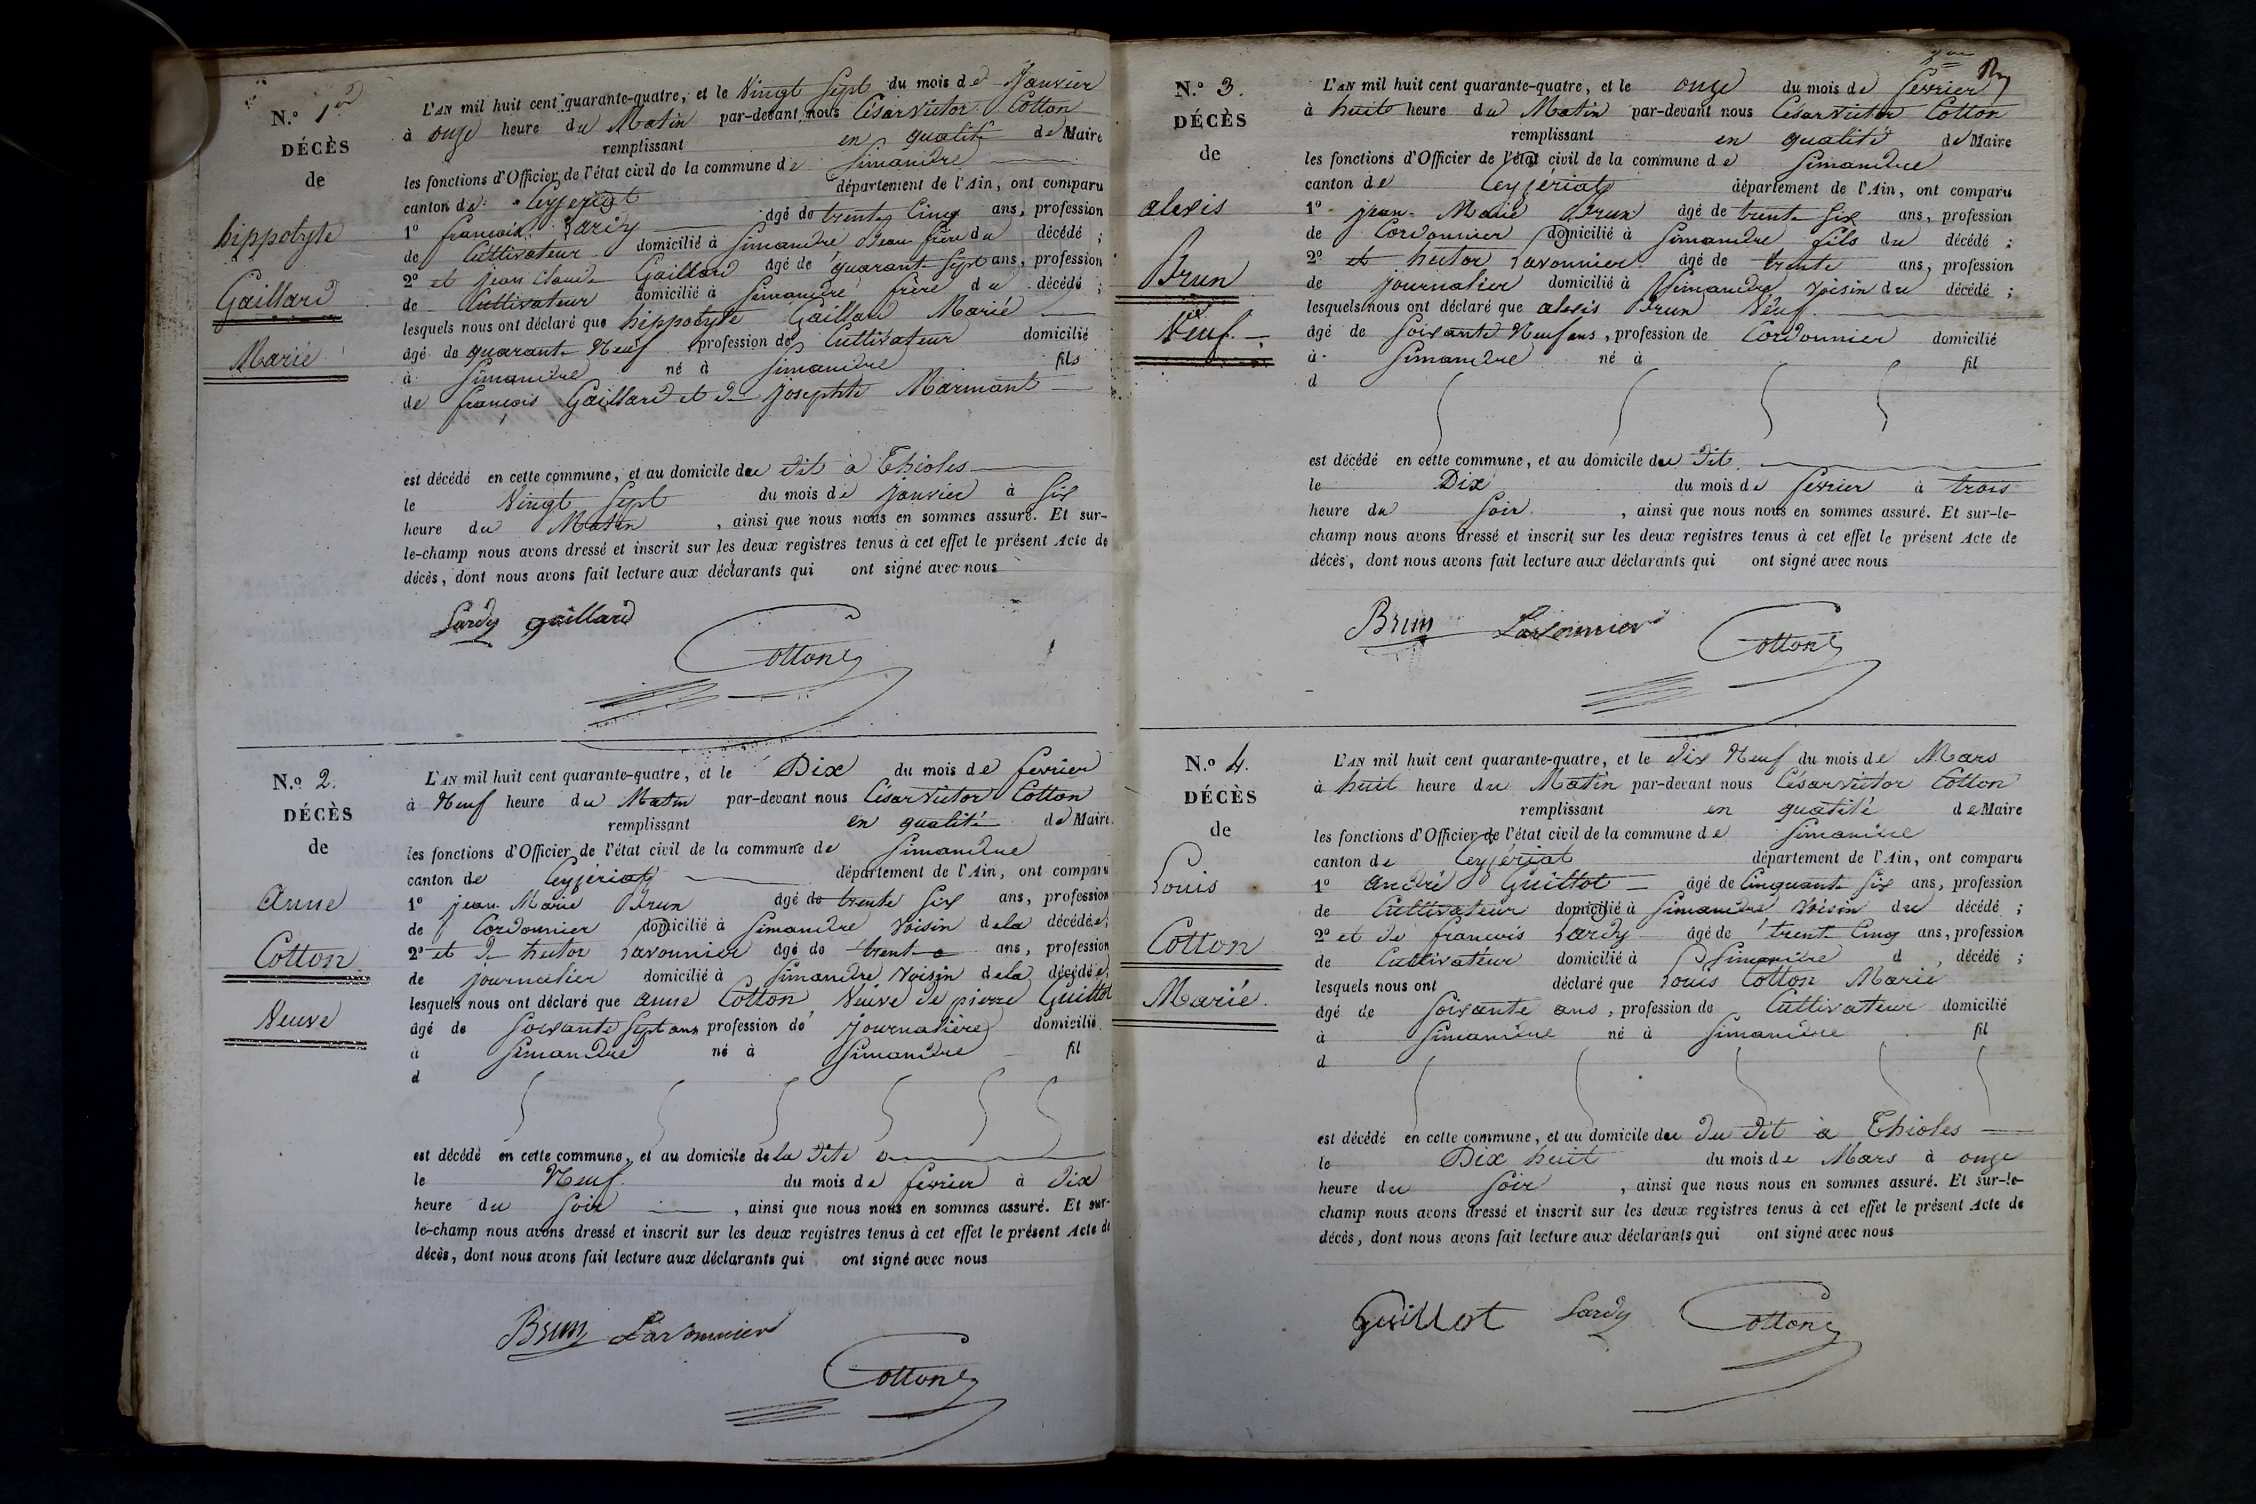 N.º 1er
DÉCÈS
de
hippolyte
Gaillard
Marié
L'AN mil huit cent quarante-quatre, et le Vingt Sept du mois de Janvier
à onze heure du Matin par-devant nous César Victor Cotton
remplissant en qualité de Maire
les fonctions d'Officier de l'état civil de la commune de Simandre
canton de Ceyzeriat département de l'Ain, ont comparu
1º françois Lardy âgé de trente Cinq ans, profession
de Cultivateur domicilié à Simandre Beau frère du décédé ;
2º et jean Claude Gaillard âgé de quarante Sept ans, profession
de Cultivateur domicilié à Simandre frère du décédé ;
lesquels nous ont déclaré que hippolyte Gaillard Marié
âgé de quarante Neuf profession de Cultivateur domicilié
à Simandre né à Simandre fils
de françois Gaillard et de Josephte Marmant
est décédé en cette commune, et au domicile du dit à Thioles
le Vingt Sept du mois de janvier à Six
heure du Matin, ainsi que nous nous en sommes assuré. Et sur-
le-champ nous avons dressé et inscrit sur les deux registres tenus à cet effet le présent Acte de
décès, dont nous avons fait lecture aux déclarants qui ont signé avec nous
Lardy gaillard
Cotton
N.º 2.
DÉCÈS
de
Anne
Cotton
Veuve
L'AN mil huit cent quarante-quatre, et le Dix du mois de fevrier
à Neuf heure du Matin par-devant nous César Victor Cotton
remplissant en qualité de Maire
les fonctions d'Officier de l'état civil de la commune de Simandre
canton de Ceyzériat département de l'Ain, ont comparu
1º jean Marie Brun âgé de trente Six ans, profession
de Cordonnier domicilié à Simandre Voisin de la décédée ;
2º et de hector Lavonnier âgé de trente ans, profession
de journalier domicilié à Simandre Voisin de la décédée ;
lesquels nous ont déclaré que anne Cotton Veuve de pierre Guillot
âgé de Soixante Sept ans profession de journalière domicilié
à Simandre né à Simandre fil
d
est décédé en cette commune, et au domicile de la dite
le Neuf du mois de fevrier à Dix
heure du Soir, ainsi que nous nous en sommes assuré. Et sur-
le-champ nous avons dressé et inscrit sur les deux registres tenus à cet effet le présent Acte de
décès, dont nous avons fait lecture aux déclarants qui ont signé avec nous
Brun Lavonnier
Cotton
N.º 3.
DÉCÈS
de
alexis
Brun
Veuf
L'AN mil huit cent quarante-quatre, et le onze du mois de fevrier
à huit heure du Matin par-devant nous César Victor Cotton
remplissant en qualité de Maire
les fonctions d'Officier de l'état civil de la commune de Simandre
canton de Ceyzériat département de l'Ain, ont comparu
1º jean Marie Brun âgé de trente Six ans, profession
de Cordonnier domicilié à Simandre fils du décédé ;
2º et hector Lavonnier âgé de trente ans, profession
de journalier domicilié à Simandre Voisin du décédé ;
lesquels nous ont déclaré que alexis Brun Veuf
âgé de Soixante Neuf ans, profession de Cordonnier domicilié
à Simandre né à fil
d
est décédé en cette commune, et au domicile du dit
le Dix du mois de fevrier à trois
heure du Soir, ainsi que nous nous en sommes assuré. Et sur-le-
champ nous avons dressé et inscrit sur les deux registres tenus à cet effet le présent Acte de
décès, dont nous avons fait lecture aux déclarants qui ont signé avec nous
Brun Lavonnier
Cotton
N.º 4.
DÉCÈS
de
Louis
Cotton
Marié.
L'AN mil huit cent quarante-quatre, et le dix Neuf du mois de Mars
à huit heure du Matin par-devant nous César Victor Cotton
remplissant en qualité de Maire
les fonctions d'Officier de l'état civil de la commune de Simandre
canton de Ceyzériat département de l'Ain, ont comparu
1º André Guillot âgé de Cinquante Six ans, profession
de Cultivateur domicilié à Simandre Voisin du décédé ;
2º et de francois Lardy âgé de trente Cinq ans, profession
de Cultivateur domicilié à Simandre d décédé ;
lesquels nous ont déclaré que Louis Cotton Marié
âgé de Soixante ans, profession de Cultivateur domicilié
à Simandre né à Simandre fil
d
est décédé en cette commune, et au domicile du du dit à Thioles
le Dix huit du mois de Mars à onze
heure du Soir, ainsi que nous nous en sommes assuré. Et sur-le-
champ nous avons dressé et inscrit sur les deux registres tenus à cet effet le présent Acte de
décès, dont nous avons fait lecture aux déclarants qui ont signé avec nous
Guillot Lardy Cotton